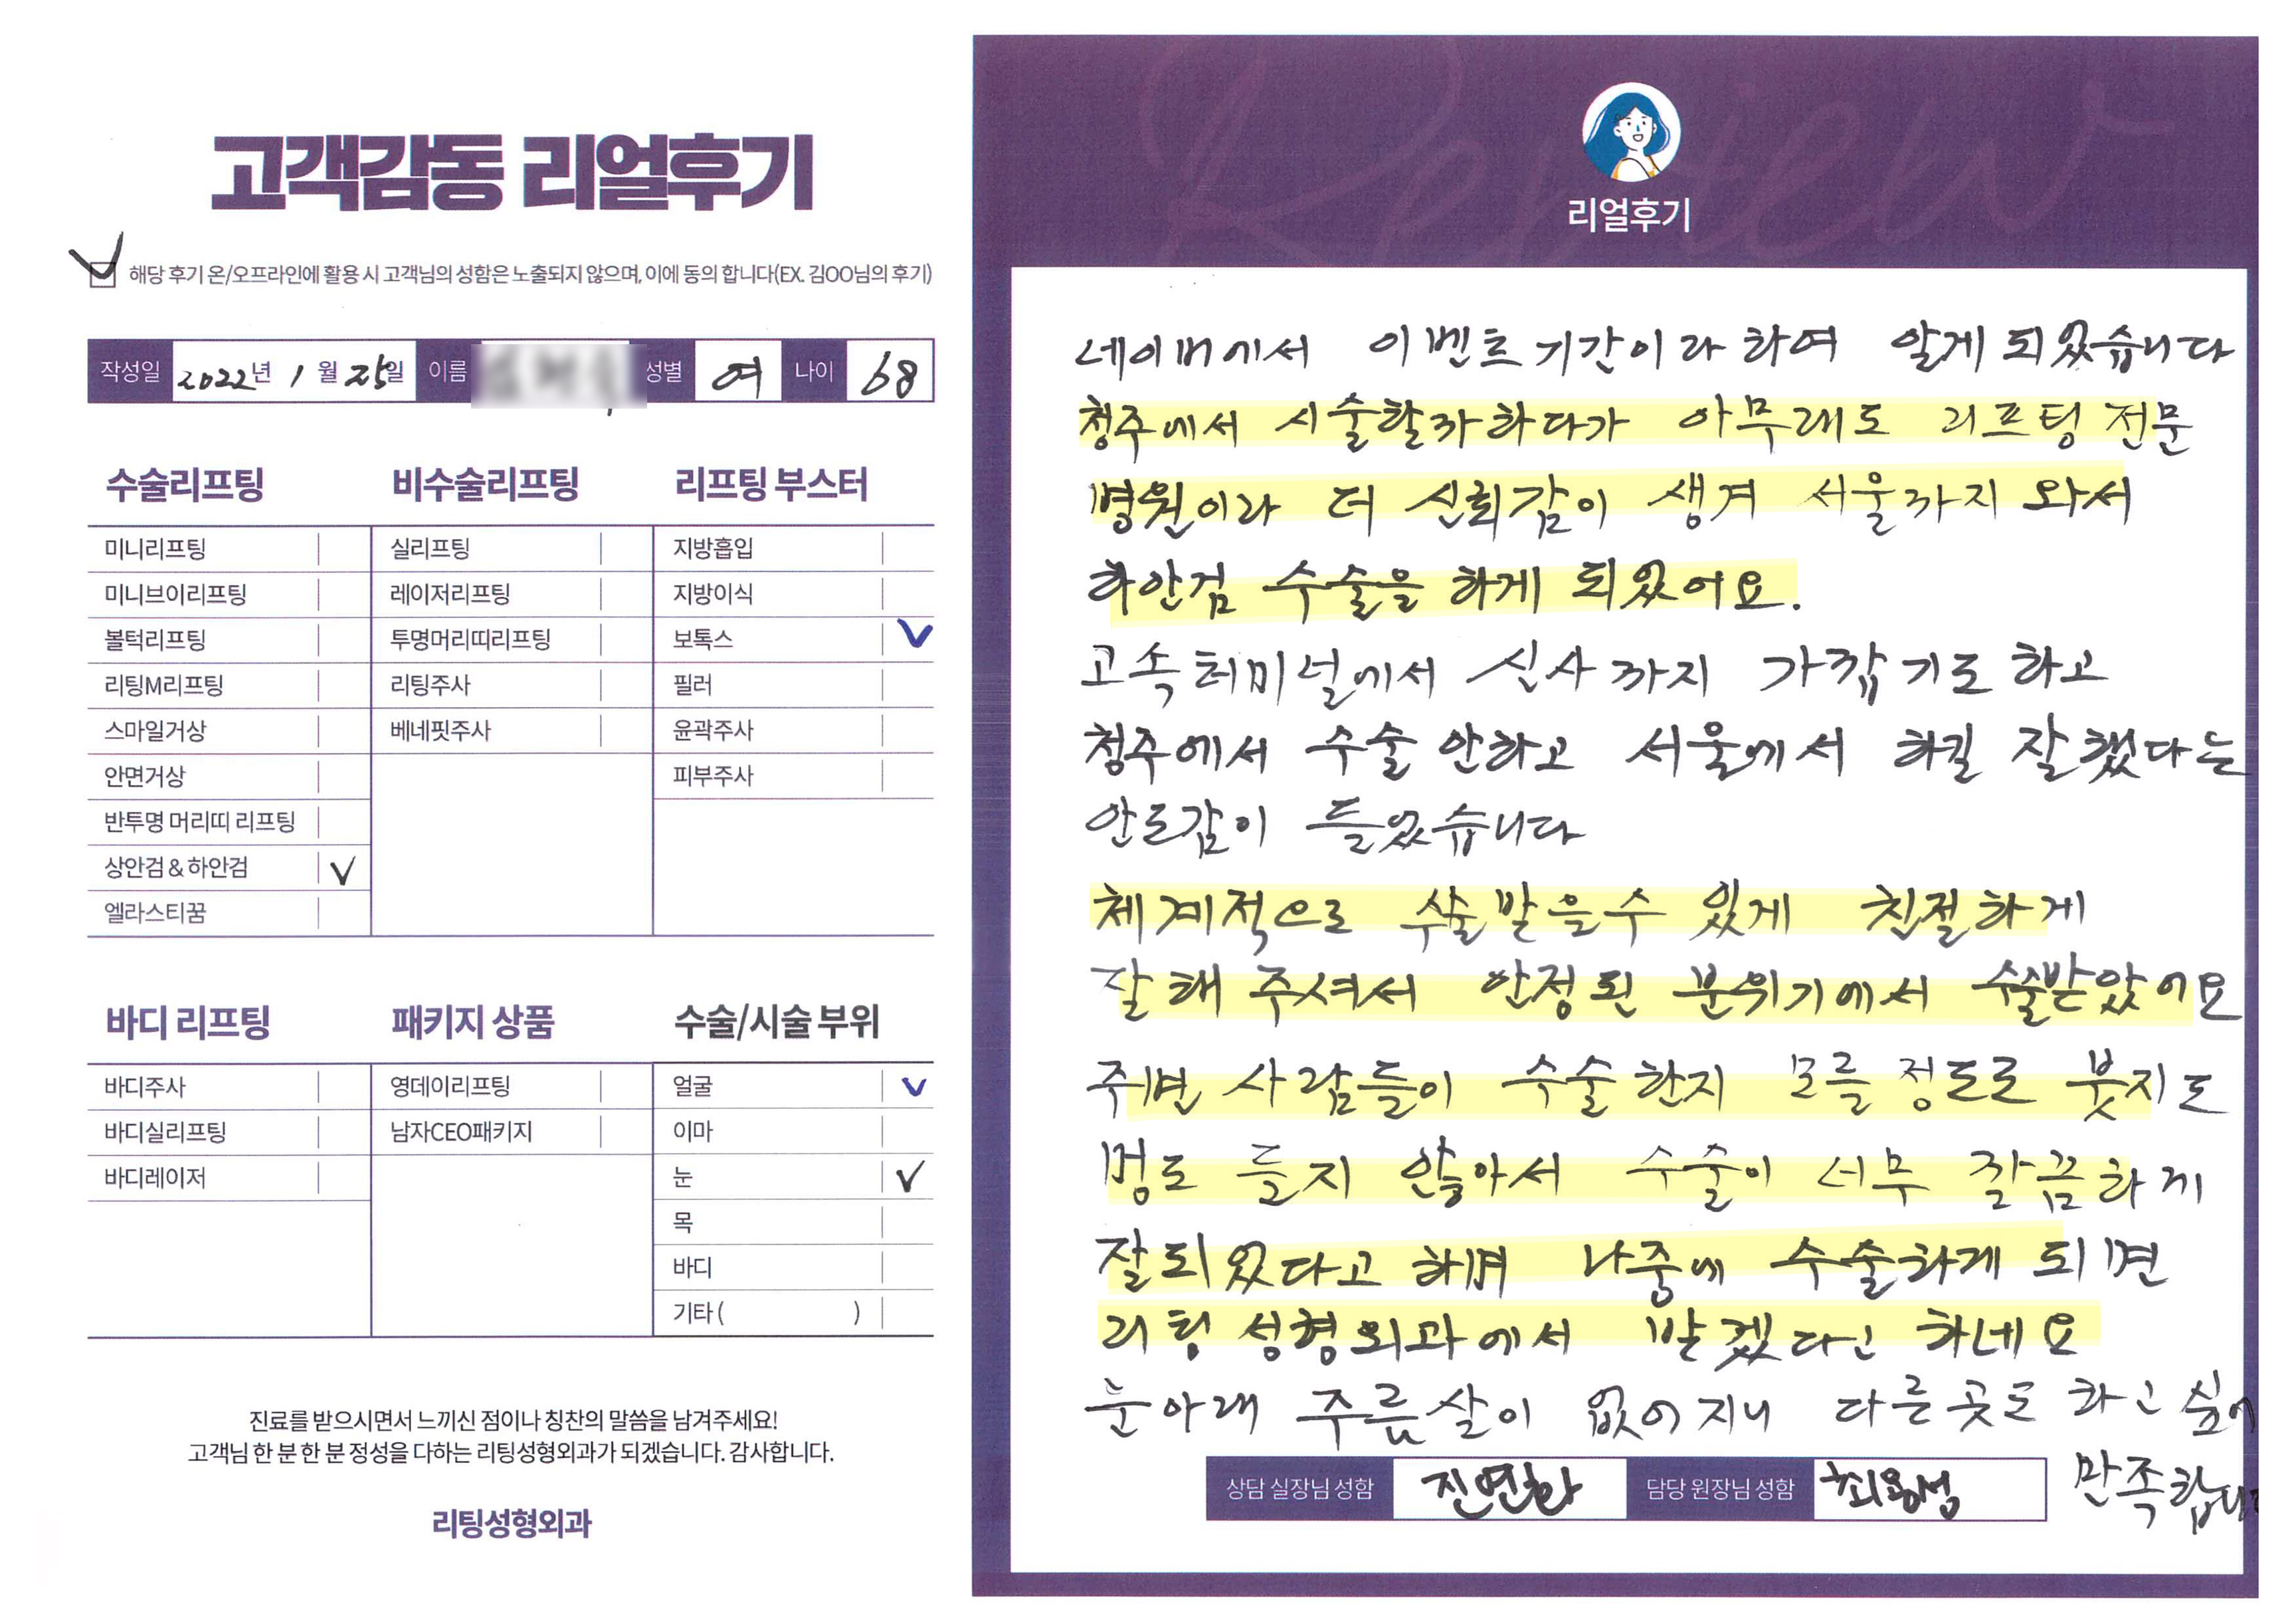 고객감동 리얼후기
해당 후기 온/오프라인에 활용 시 고객님의 성함은 노출되지 않으며, 이에 동의 합니다(EX. 김OO님의 후기)
작성일 2022년 1월 25일 이름 성별 여 나이 68
수술리프팅
미니리프팅
미니브이리프팅
볼턱리프팅
리팅M리프팅
스마일거상
안면거상
반투명 머리띠 리프팅
상안검 & 하안검
엘라스티꿈
비수술리프팅
실리프팅
레이저리프팅
투명머리띠리프팅
리팅주사
베네핏주사
리프팅 부스터
지방흡입
지방이식
보톡스
필러
윤곽주사
피부주사
바디 리프팅
바디주사
바디실리프팅
바디레이저
패키지 상품
영데이리프팅
남자CEO패키지
수술/시술 부위
얼굴
이마
눈
목
바디
기타 ( )
진료를 받으시면서 느끼신 점이나 칭찬의 말씀을 남겨주세요!
고객님 한 분 한 분 정성을 다하는 리팅성형외과가 되겠습니다. 감사합니다.
리팅성형외과
Review
리얼후기
네이버에서 이벤트기간이라 하여 알게 되었습니다
청주에서 시술할까하다가 아무래도 리프팅 전문
병원이라 더 신뢰감이 생겨 서울까지 와서
하안검 수술을 하게 되었어요.
고속터미널에서 신사까지 가깝기도 하고
청주에서 수술 안하고 서울에서 하길 잘했다는
안도감이 들었습니다
체계적으로 수술받을수 있게 친절하게
잘해 주셔서 안정된 분위기에서 수술받았어요
주변 사람들이 수술한지 모를 정도로 붓지도
멍도 들지 않아서 수술이 너무 깔끔하게
잘되었다고 하며 나중에 수술하게 되면
리팅성형외과에서 받겠다고 하네요
눈아래 주름살이 없어지니 다른곳도 하고싶어
만족합니다
상담 실장님 성함 진연화 담당 원장님 성함 최용성